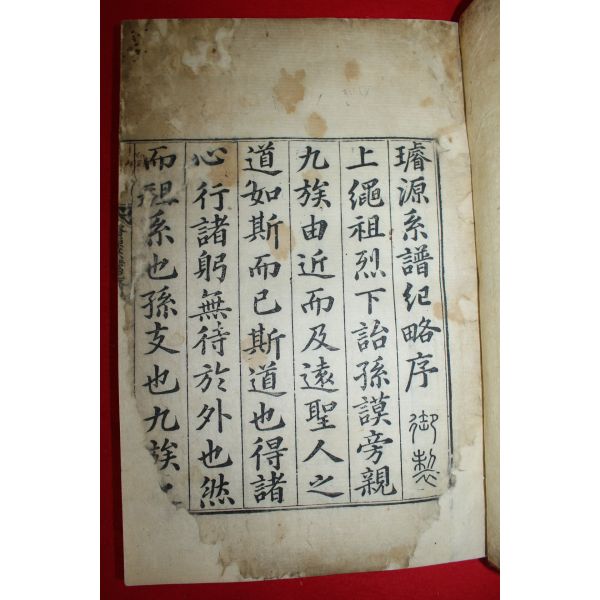 璿源系譜紀略序 御製
上繩祖烈下詒孫謨旁親
九族由近而及遠聖人之
道如斯而已斯道也得諸
心行諸躬無待於外也然
而祖系也孫支也九族